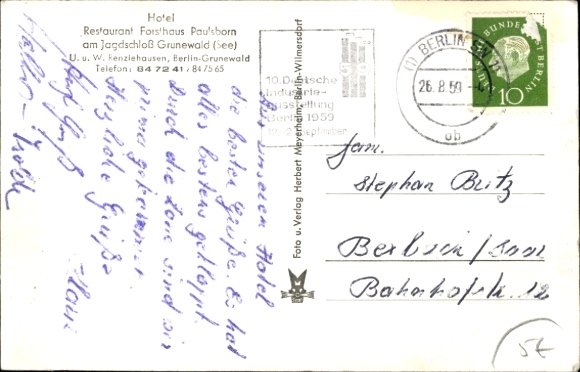 Hotel
Restaurant Forsthaus Paulsborn
am Jagdschloß Grunewald (See)
U. u. W. Renziehausen, Berlin-Grunewald
Telefon: 84 72 41 / 84 75 65
Aus unserem Hotel
die besten Grüße. Es hat
alles bestens geklappt.
Durch die Zone sind wir
prima gekommen
Herzliche Grüße
Hans
Foto u. Verlag Herbert Meyerheim, Berlin-Wilmersdorf
10. Deutsche
Industrie-
Ausstellung
Berlin 1959
September
(1) BERLIN
26.8.59
ob
DEUTSCHE BUNDESPOST BERLIN
10
Fam.
Stephan Britz
Bexbach / Saar
Bahnhofstr. 12
5E